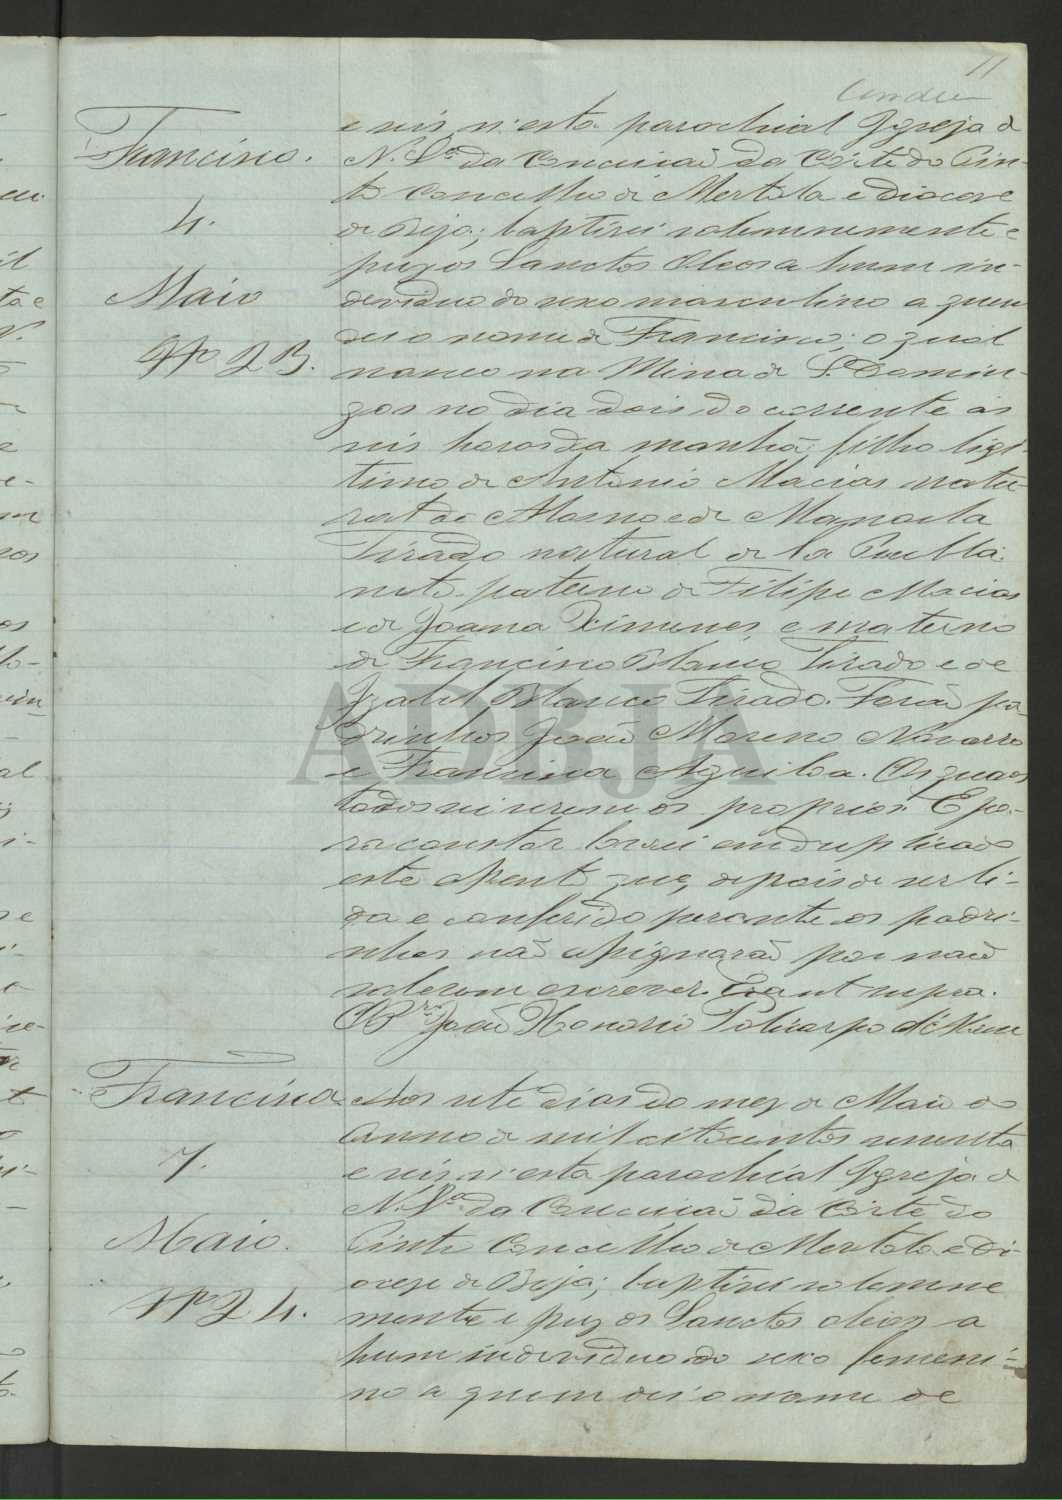 11
Francisco.
4.
Maio
Nº 23.
e seis n'esta parochial Igreja de
N. Srª da Conceicaõ da Côrte do Pin-
to Concelho de Mertola e Diocese
de Beja; baptisei solemnemente e
puz os Sanctos Oleos a hum in-
deviduo do sexo masculino a quem
dei o nome de Francisco; o qual
nasceo na Mina de S. Domin-
gos no dia dois do corrente ás
seis horas da manhã; filho ligi-
timo de Antonio Macias natu-
ral de Alosno e de Manoela
Tirado natural de la Puebla:
neto paterno de Filipe Macias
e de Joana Ximenes, e materno
de Francisco Blanco Tirado e de
Izabel Blanco Tirado. Foraõ pa
drinhos Joaõ Moreno Navarro
e Francisca Aguiloa. Os quaes
todos sei serem os proprios. E pa-
ra constar lavrei em duplicado
este Assento que, depois de ser li-
do e conferido perante os padri-
nhos naõ assignaraõ por naõ
saberem escrever. Era ut supra.
O Joaõ Honorio Policarpo
Francisca
7.
Maio.
Nº 24.
Aos sete dias do mez de Maio do
Anno de mil oitocentos secenta
e seis n'esta parochial Igreja de
N. Srª da Conceicaõ da Côrte do
Pinto Concelho de Mertola e Di-
ocese de Beja; baptisei solemne
mente e puz os Sanctos oleos a
hum individuo do sexo femeni-
no a quem dei o nome de
ADBJA